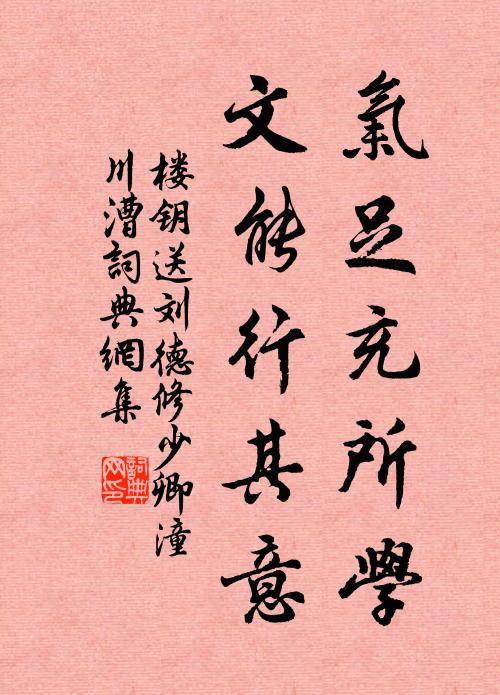 氣足充所學
文能行其意
楼钥送刘德修少卿潼
川漕詞典網集
詞典
网印